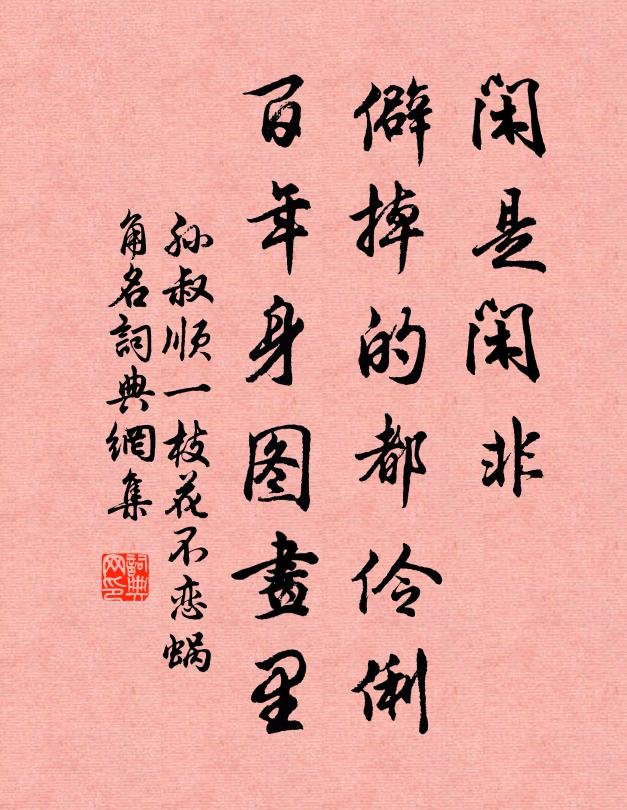 闲是闲非
僻掉的都伶俐
百年身图畫里
孙叔顺一枝花不恋蜗
角名詞典網集
詞典
网印